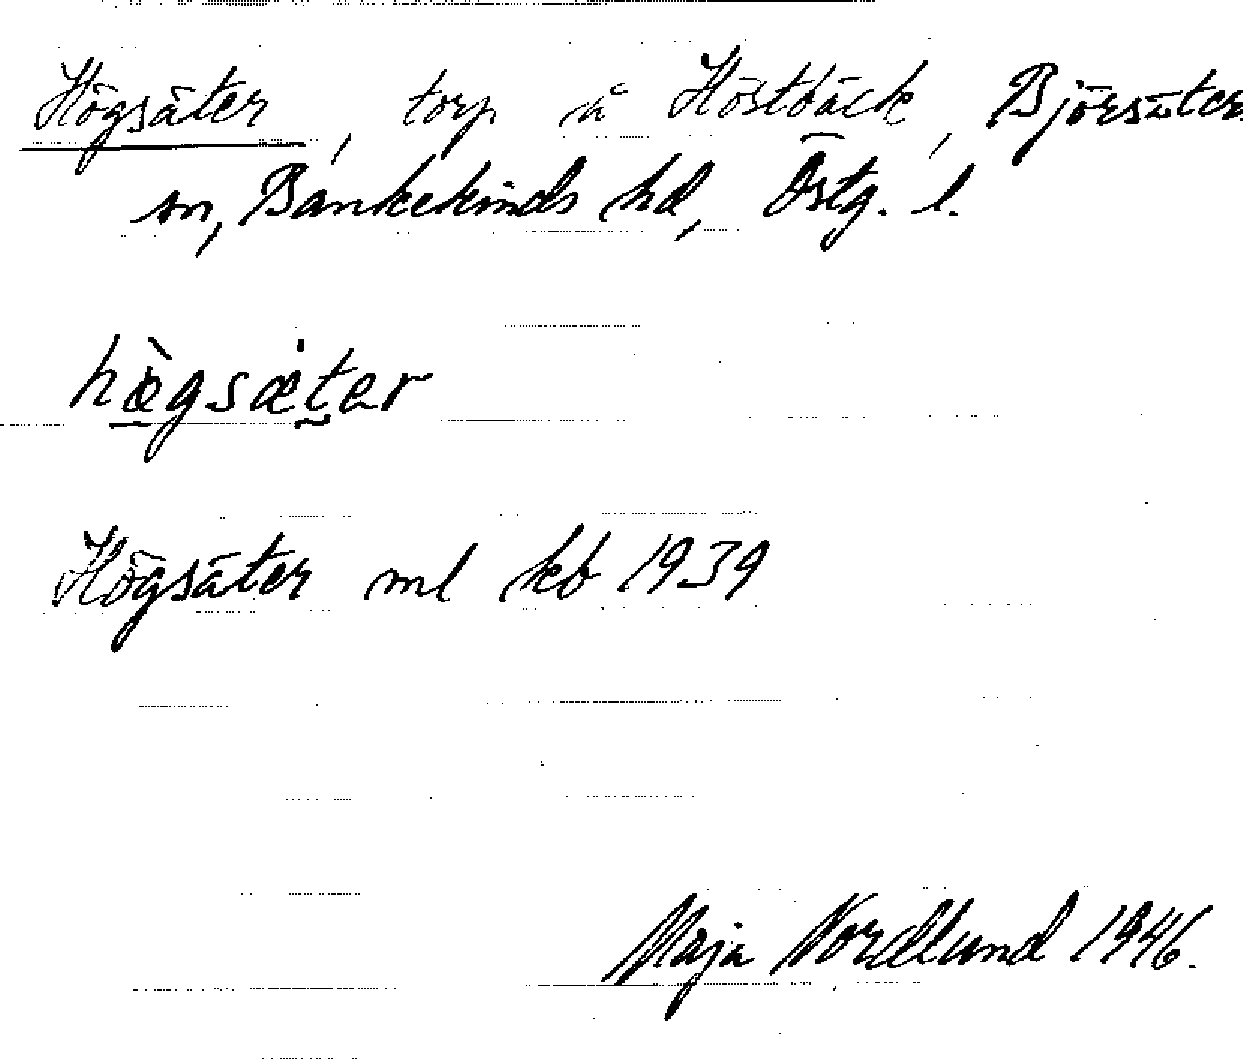 Högsäter, torp å Höstbäck, Björsäters
sn, Bankekinds hd, Östg. l.
hø̀gsæ̇ter
Högsäter ml kb 1939
Maja Nordlund 1946.